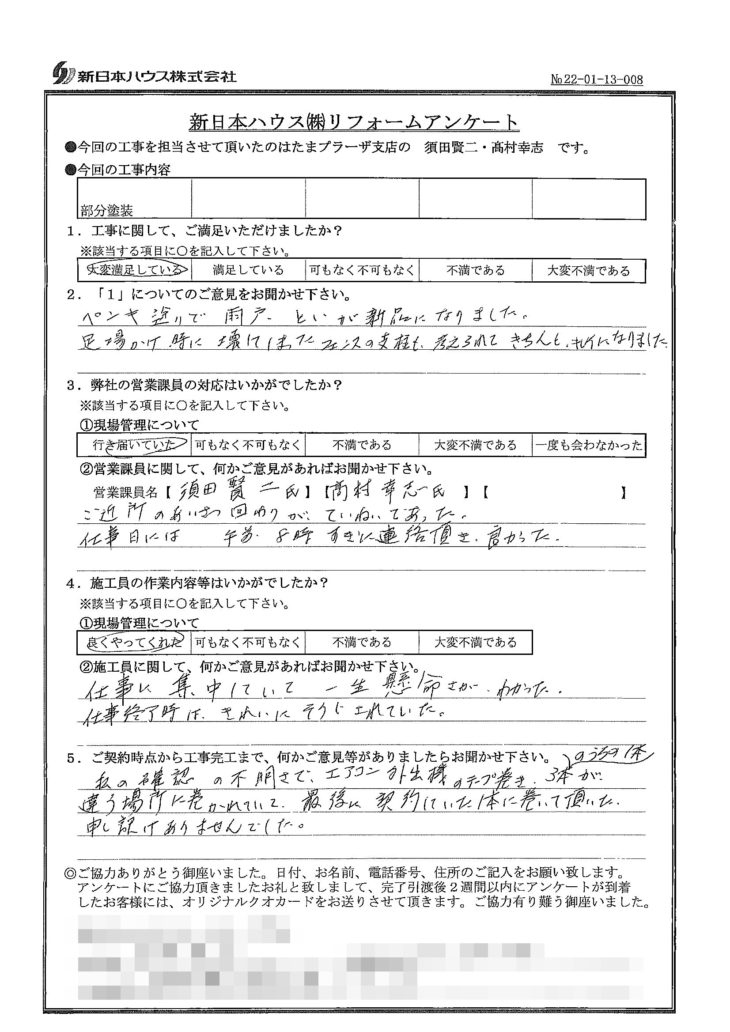 新日本ハウス株式会社
№22-01-13-008
新日本ハウス㈱リフォームアンケート
●今回の工事を担当させて頂いたのはたまプラーザ支店の 須田賢二・髙村幸志 です。
●今回の工事内容
部分塗装
1．工事に関して、ご満足いただけましたか？
※該当する項目に○を記入して下さい。
大変満足している 満足している 可もなく不可もなく 不満である 大変不満である
2．「1」についてのご意見をお聞かせ下さい。
ペンキ塗りで 雨戸、といが新品になりました。
足場かけ時に壊してしまったフェンスの支柱も、考えられて きちんと、キレイになりました
3．弊社の営業課員の対応はいかがでしたか？
※該当する項目に○を記入して下さい。
①現場管理について
行き届いていた 可もなく不可もなく 不満である 大変不満である 一度も会わなかった
②営業課員に関して、何かご意見があればお聞かせ下さい。
営業課員名【 須田賢二氏 】【 髙村幸志氏 】【 】
ご近所のあいさつ回わりが、ていねいであった。
仕事日には 午前 8時 すぎに連絡頂き、良かった。
4．施工員の作業内容等はいかがでしたか？
※該当する項目に○を記入して下さい。
①現場管理について
良くやってくれた 可もなく不可もなく 不満である 大変不満である
②施工員に関して、何かご意見があればお聞かせ下さい。
仕事に集中していて 一生懸命さが、わかった。
仕事終了時は、きれいにそうじされていた。
5．ご契約時点から工事完工まで、何かご意見等がありましたらお聞かせ下さい。
のうちの1本
私の確認の不明さで、エアコン外出機のテープ巻き、3本が
違う場所に巻かれていて、最後に契約していた1本に巻いて頂いた。
申し訳けありませんでした。
◎ご協力ありがとう御座いました。日付、お名前、電話番号、住所のご記入をお願い致します。
アンケートにご協力頂きましたお礼と致しまして、完了引渡後２週間以内にアンケートが到着
したお客様には、オリジナルクオカードをお送りさせて頂きます。ご協力有り難う御座いました。